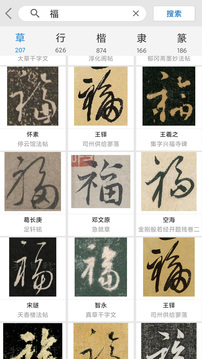 福
搜索
草 行 楷 隶 篆
207 626 874 186 186
太草千字文 淳化阁帖
福 福 福
怀素 王铎 王羲之
停云馆法帖 司州供给寥落 集字兴福寺碑
福 福 福
葛长庚 邓文原 空海
足轩铭 急就章 金刚般若经开题残卷二
福 福 福
宋璲 智永 王铎
天香楼法帖 真草千字文 司州供给寥落